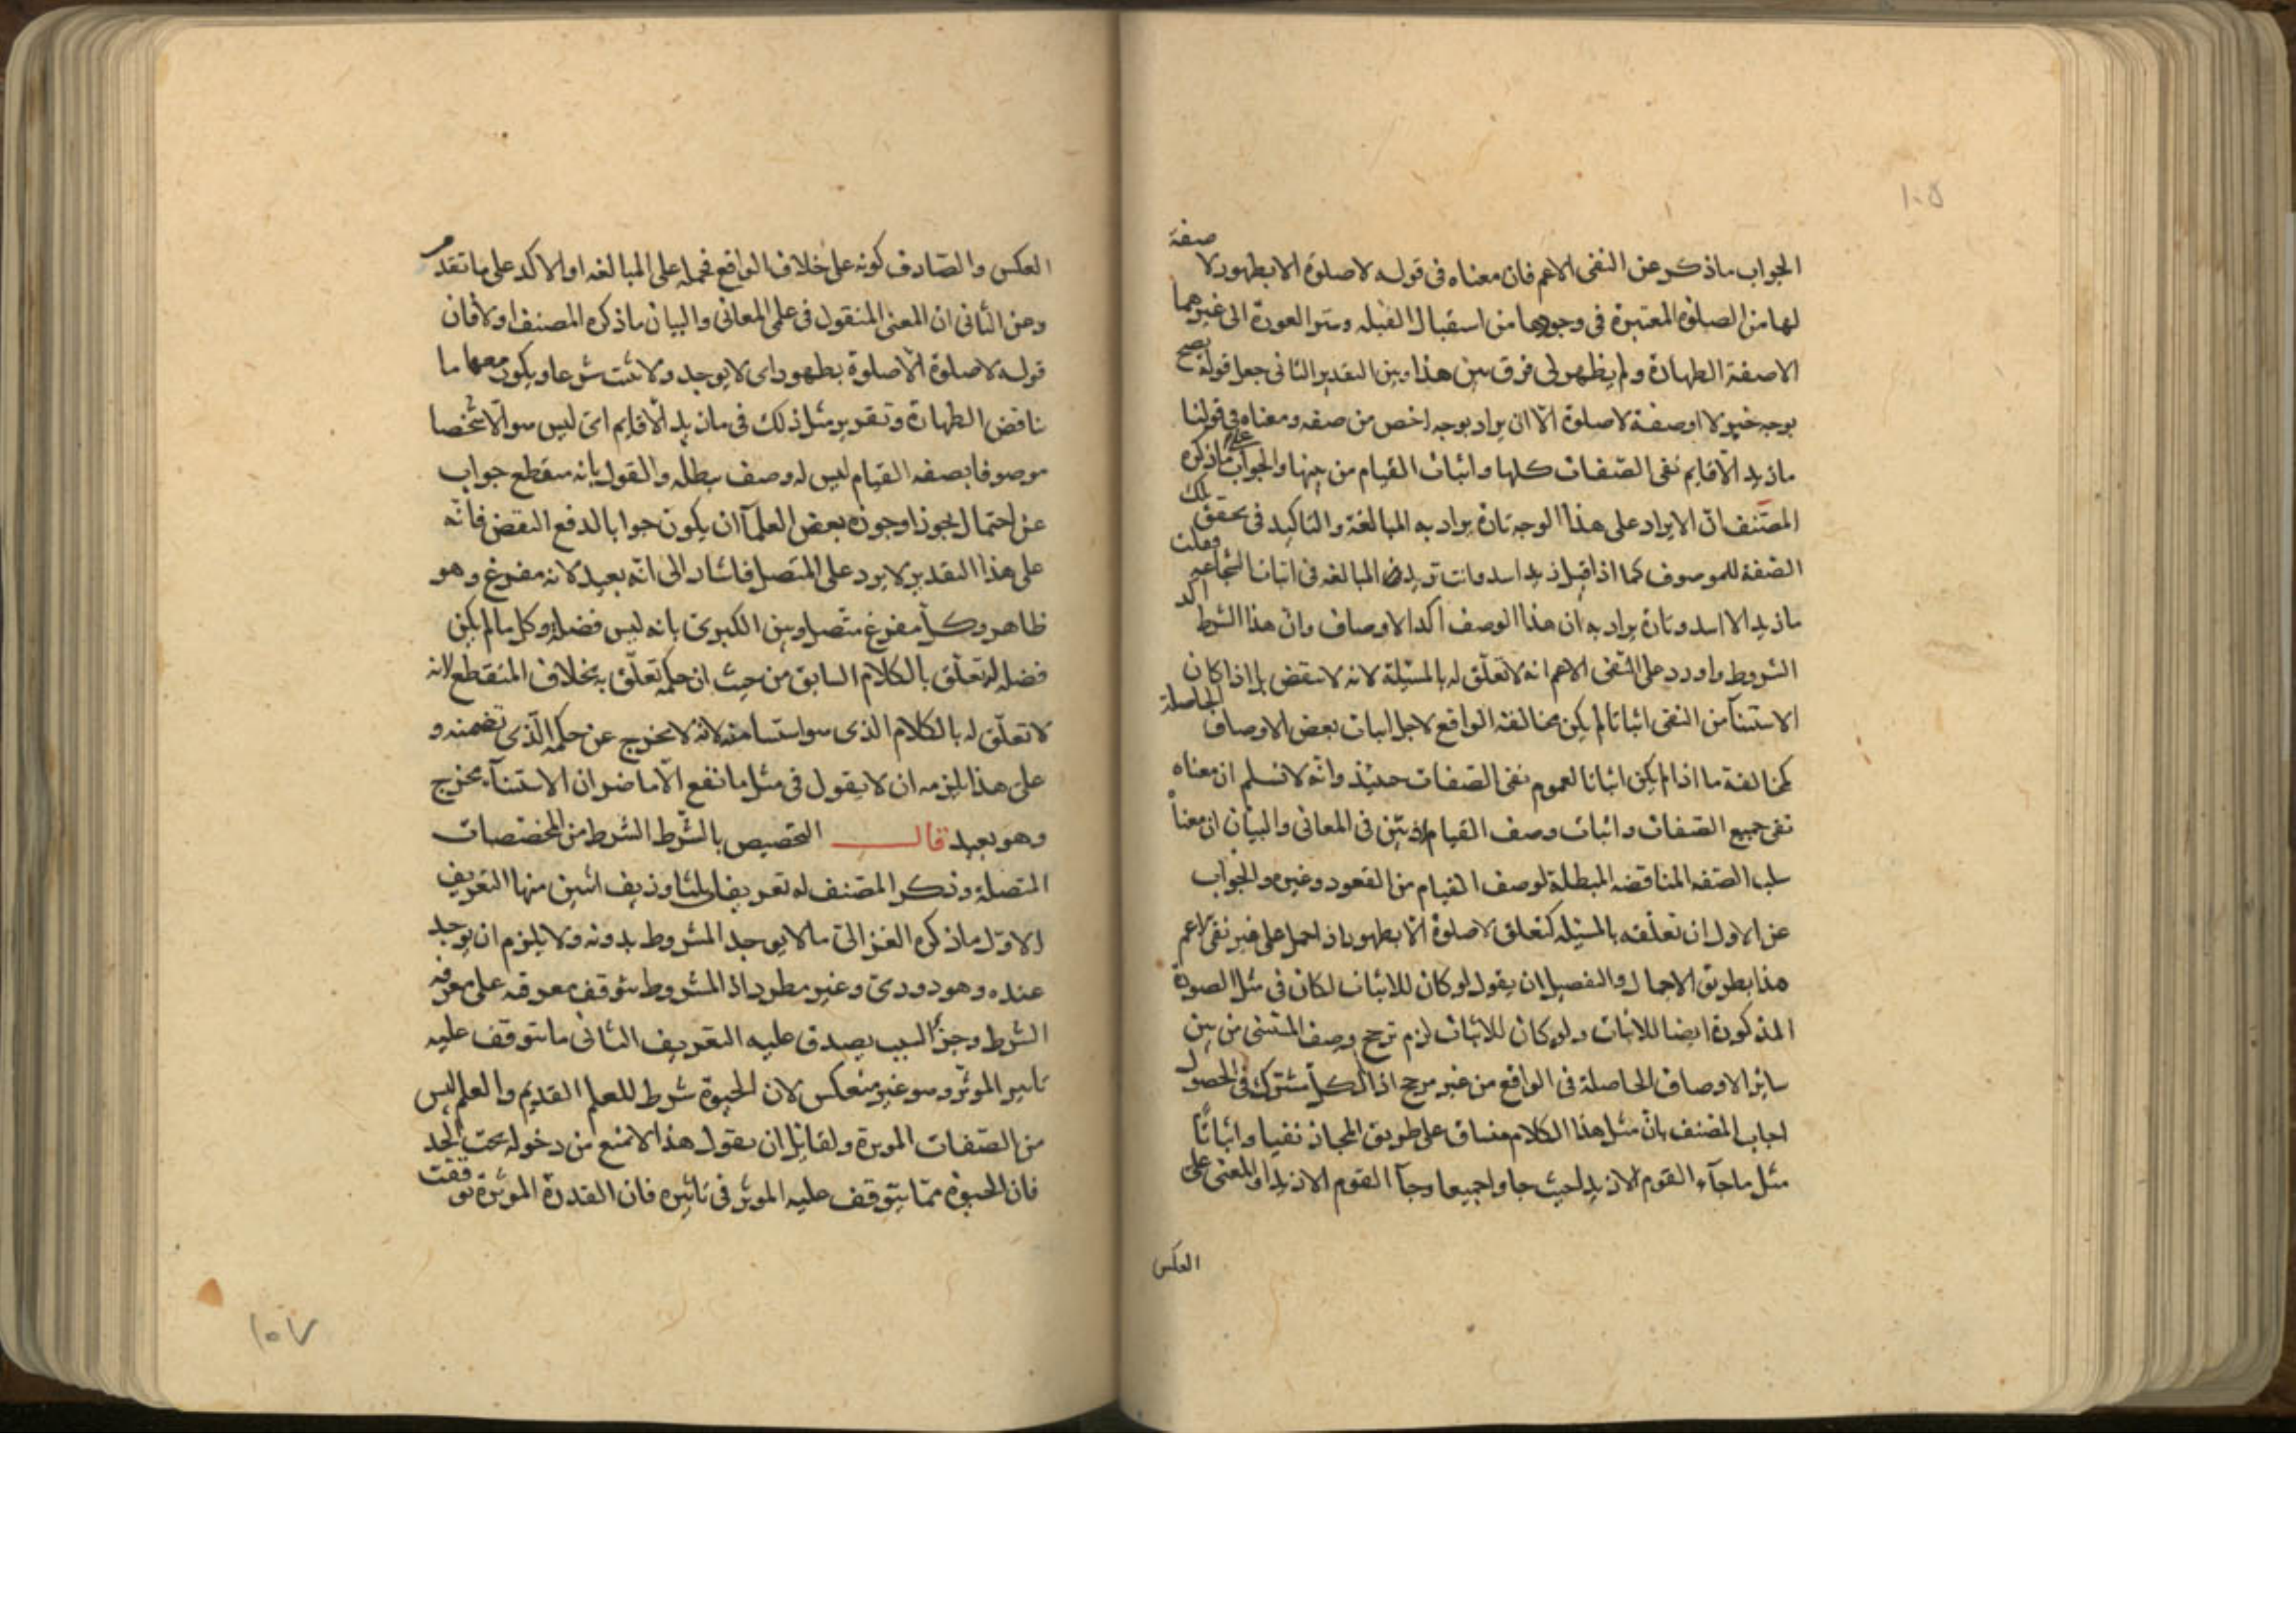 ١٠٥
الجواب ماذكر عن النفى الاعم فان معناه فى قوله لا صلوة الا بطهور لا صفة
لها من الصلوة المعتبرة فى وجودها من استقبال القبله وستر العورة الى غيرهما
الا صفة الطهارة ولم يظهر لى فرق بين هذا وبين التقدير الثانى جعل قوله يصح
بوجه خبر لا او صفة لا صلوة الا ان يراد بوجه اخص من صفه ومعناه فى قولنا
ما زيد الا قايم نفى الصفات كلها واثبات القيام من بينها والجواب على ماذكره
المصنف ان الايراد على هذا الوجه تارة يراد به المبالغة والتاكيد فى تحقق تلك
الصفة للموصوف كما اذا قيل زيد اسد وانت تريد المبالغه فى اثبات الشجاعيه فقلت
ما زيد الا اسد وتارة يراد به ان هذا الوصف آكد الاوصاف وان هذا الشرط اكد
الشروط واورد على النفى الاعم انه لا تعلق له بالمسئلة لانه لا ينقض بل اذا كان
الاستثنآ من النفى اثباتا لم يكن مخالفة الواقع لاجل اثبات بعض الاوصاف الحاصلة
كمخالفة ما اذا لم يكن اثباتا لعموم نفى الصفات حينئذ وانه لا نسلم ان معناه
نفى جميع الصفات واثبات وصف القيام اذ تبين فى المعانى والبيان ان معناه
سلب الصفه المناقضه المبطلة لوصف القيام من القعود وغيره والجواب
عن الاول ان تعلقه بالمسئيله كتعلق لا صلوة الا بطهور اذ احمل على غير نفى الاعم
هذا بطريق الاجمال والتفصيل ان يقول لو كان للاثبات لكان فى مثل الصورة
المذكورة ايضا للاثبات ولو كان للاثبات لزم ترجح وصف المستثنى من بين
ساير الاوصاف الحاصلة فى الواقع من غير مرجح اذ الكل مشترك فى الحصول
اجاب المصنف بان مثل هذا الكلام منساق على طريق المجاز نفيا واثباتا
مثل ما جآء القوم الا زيد احيث جاوا جميعا وجآ القوم الا زيدا والمعنى على
العكس
العكس والصارف كونه على خلاف الواقع فحمله على المبالغه او الاكد على ما تقدم
وعن الثانى ان المعنى المنقول فى علمى المعانى والبيان ماذكره المصنف اولا فان
قوله لا صلوة الا صلوة بطهور اى لا يوجد ولا يثبت شرعا ويكون معها ما
ناقض الطهارة وتقرير مثل ذلك فى ما زيد الا قايم اى ليس هو الا شخصا
موصوفا بصفه القيام ليس له وصف يبطله والقول بانه منقطع جواب
عن احتمال يجوز او جوزه بعض العلمآ ان يكون جوابا لدفع النقض فانه
على هذا التقدير لا يرد على المتصل فاشار الى انه بعيد لانه مفرغ وهو
ظاهر وكل مفرغ متصل وبين الكبرى بانه ليس فضلة وكل ما لم يكن
فضله له تعلق بالكلام السابق من حيث ان حكمه تعلق به بخلاف المنقطع لانه
لا تعلق له بالكلام الذى هو استسا منه لانه لا يخرج عن حكمه الذى تضمنه و
على هذا يلزمه ان لا يقول فى مثل ما نفع الا ما ضر ان الاستثنآء مخرج
وهو بعيد قال التخصيص بالشرط الشرط من المخصصات
المتصلة وذكر المصنف له تعريفات ثلثا وزيف اثنين منها التعريف
الاول ماذكره الغزالى ما لا يوجد المشروط بدونه ولا يلزم ان يوجد
عنده وهو دورى وغير مطرد اذ المشروط يتوقف معرفه على معرفه
الشرط وجزء السبب يصدق عليه التعريف الثانى ما يتوقف عليه
تاثير الموثر وهو غير منعكس لان الحيوة شرط للعلم القديم والعلم ليس
من الصفات الموثرة ولقايل ان يقول هذا لا يمنع من دخوله تحت الحد
فان الحيوة مما يتوقف عليه الموثر فى تاثيره فان القدرة الموثرة توقفت
١٥٧